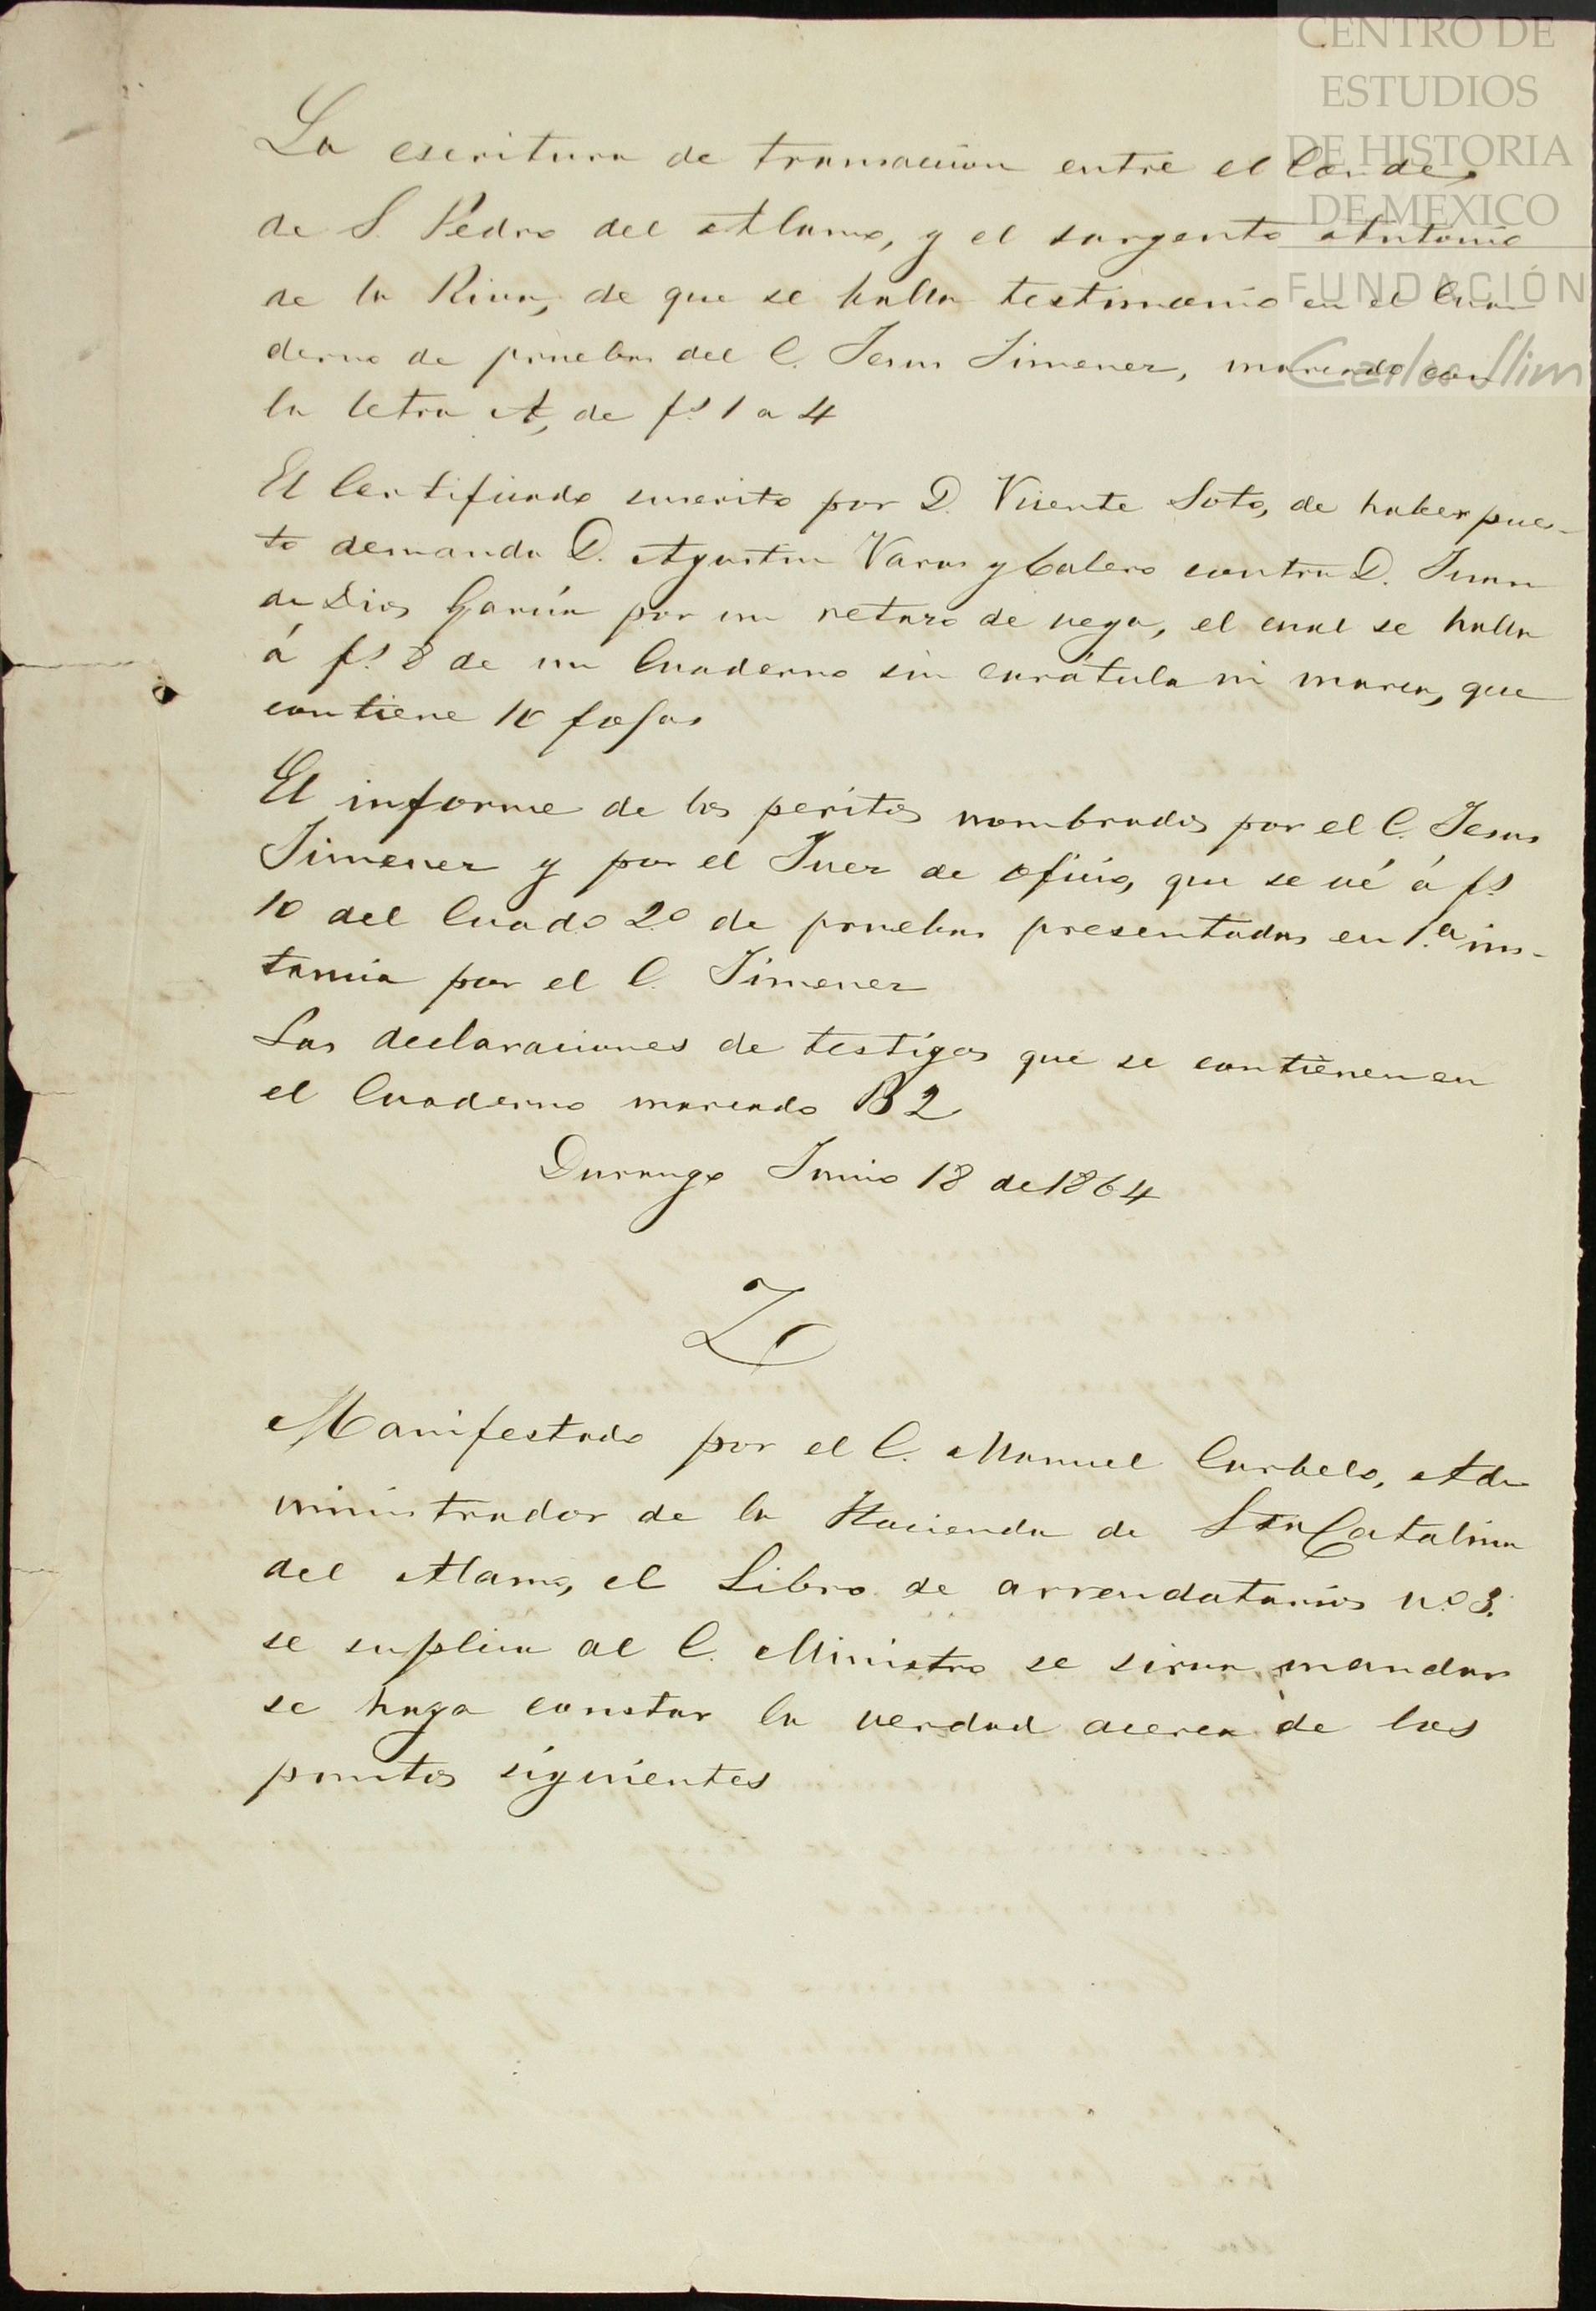 CENTRO DE
ESTUDIOS
DE HISTORIA
DE MEXICO
FUNDACIÓN
Carlos Slim
La escritura de transaccion entre el Conde
de S. Pedro del Alamo, y el sargento Antonio
de la Riva, de que se halla testimonio en el Cua
derno de pruebas del C. Jesus Jimenez, marcado con
la letra A, de fs. 1 a 4
El Certificado suscrito por D. Vicente Soto, de haber pues-
to demanda D. Agustin Varas y Calero contra D. Juan
de Dios Garcia por un retazo de vega, el cual se halla
á fs. 8 de un Cuaderno sin carátula ni marca, que
contiene 10 fojas
El informe de los peritos nombrados por el C. Jesus
Jimenez y por el Juez de oficio, que se vé á fs.
10 del Cuado 2.º de pruebas presentadas en 1.ª ins-
tancia por el C. Jimenez
Las declaraciones de testigos que se contienen en
el Cuaderno marcado B 2
Durango Junio 18 de 1864
Manifestado por el C. Manuel Curbelo, Ad
ministrador de la Hacienda de Sta Catalina
del Alamo, el Libro de arrendatarios n.º 3.
se suplica al C. Ministro se sirva mandar
se haga constar la verdad acerca de los
puntos siguientes